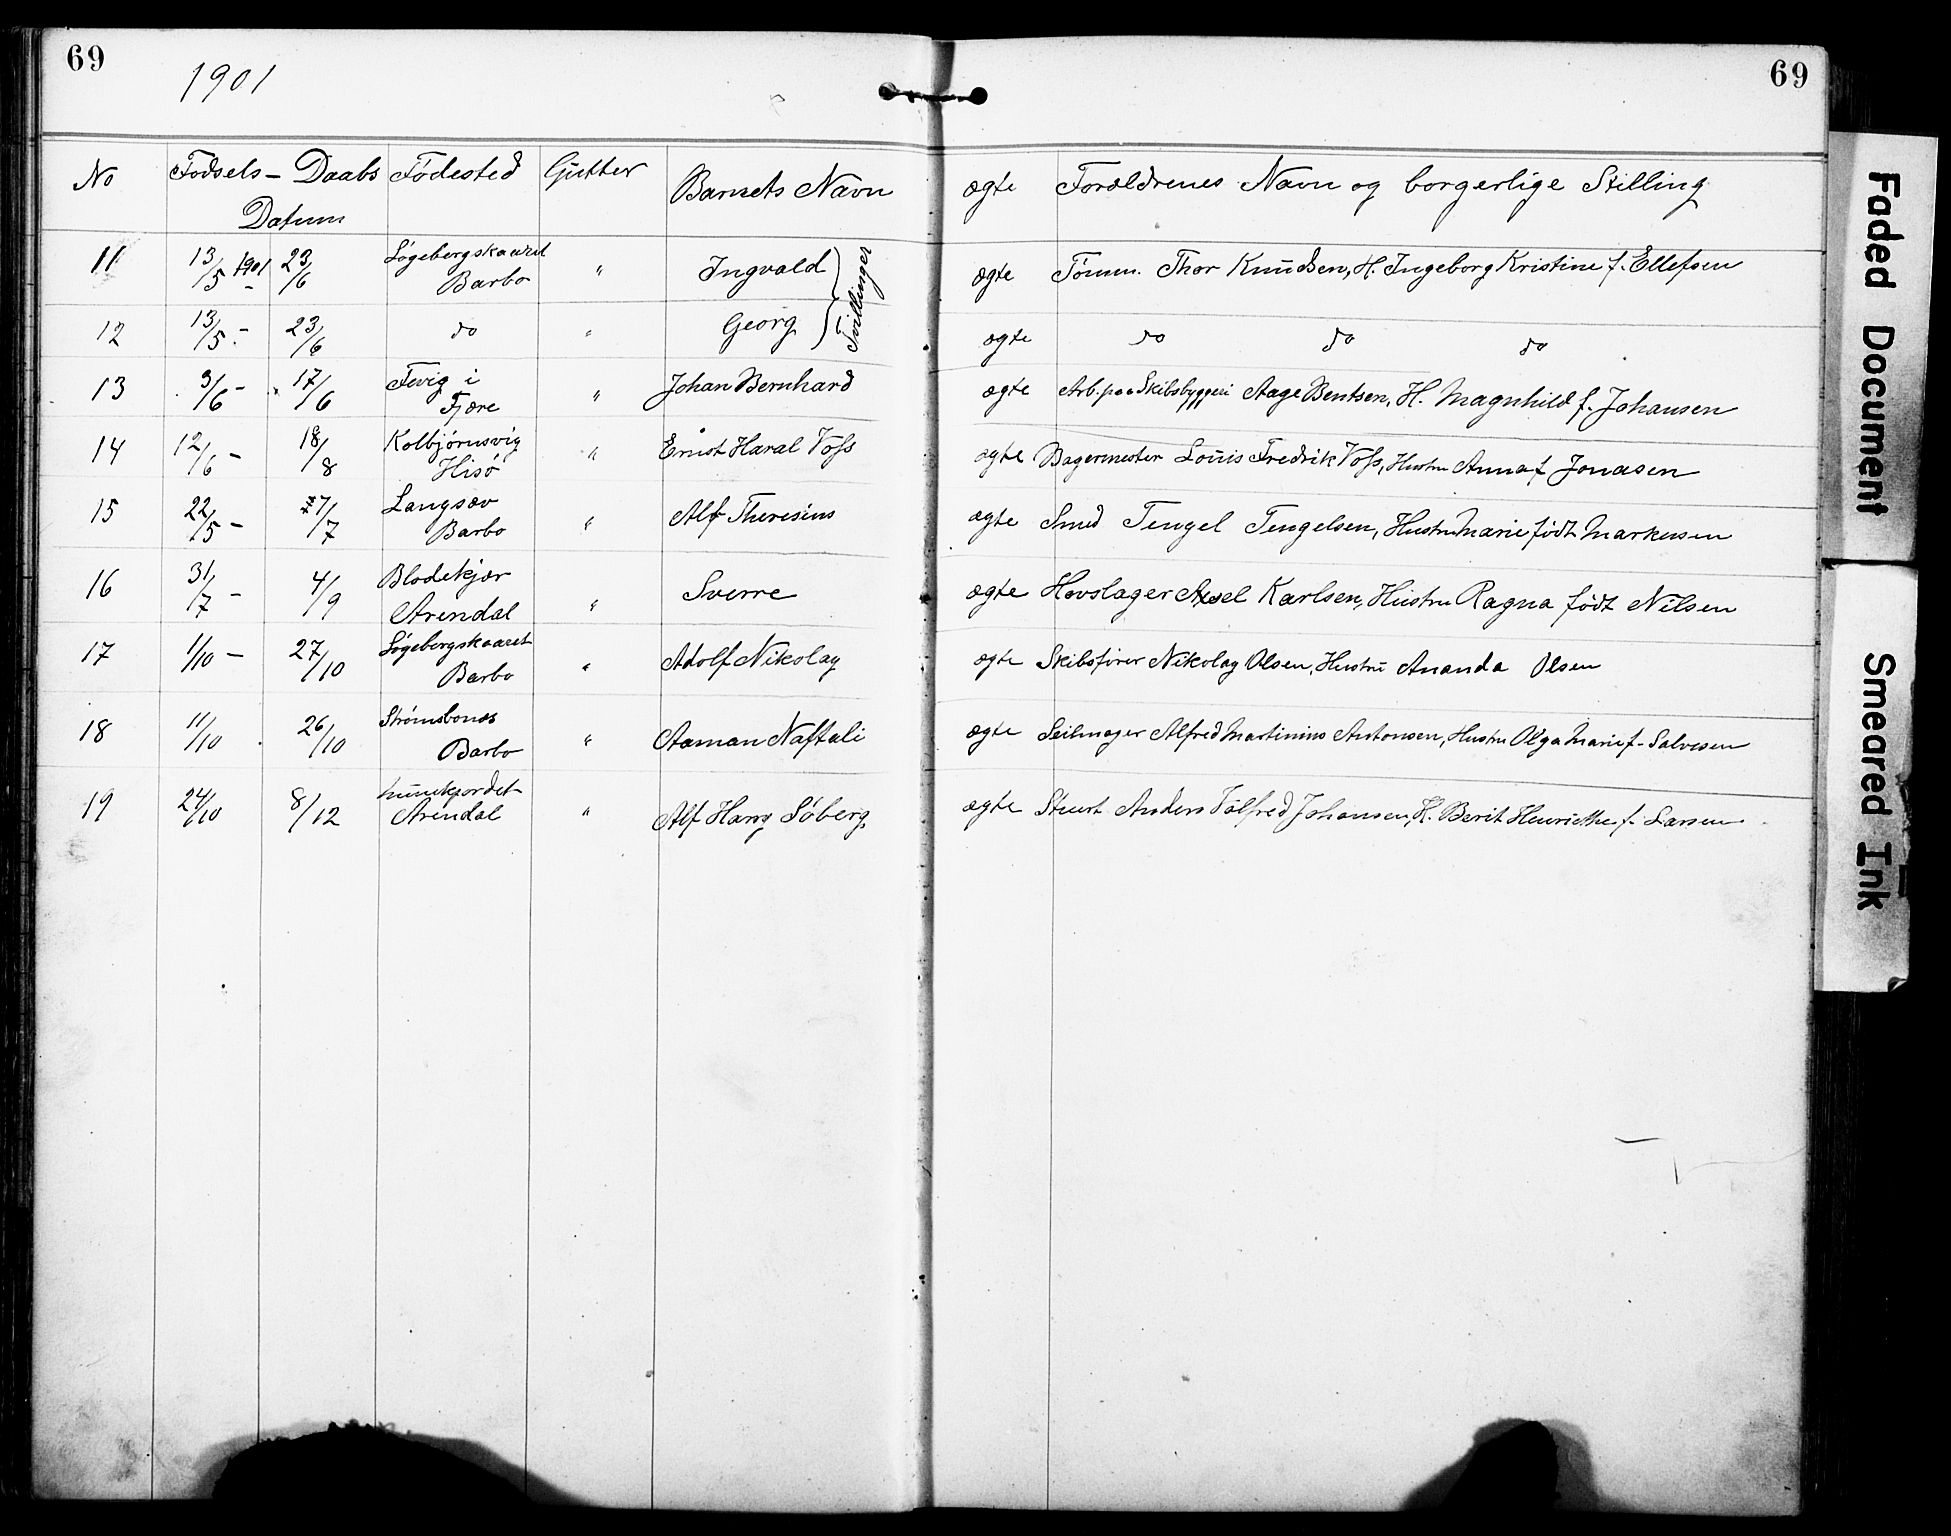 69
1901
69
No Fødsels- Daabs Fødested Gutter Barnets Navn ægte Forældrenes Navn og borgerlige Stilling
Datum
11 13/5 1901 23/6 Løgebergskaaret Barbo " Ingvald ægte Tømm. Thor Knudsen, H. Ingeborg Kristine f. Ellefsen
Tvillinger
12 13/5 - 23/6 do " Georg ægte do do do
13 3/6 - 17/6 Fevig i Fjære " Johan Bernhard ægte Arb. paa Skibsbyggeri Aage Bentsen, H. Magnhild f. Johansen
14 12/6 - 18/8 Kolbjørnsvig Hisø " Ernst Haral Voss ægte Bagermester Louis Fredrik Voss, Hustru Anna f Jonasen
15 22/5 - 7/7 Langsæv Barbo " Alf Theresius ægte Smed Tengel Tengelsen, Hustru Marie født Markusen
16 31/7 - 4/9 Blodekjær Arendal " Sverre ægte Hovslager Axel Karlsen, Hustru Ragna født Nilsen
17 1/10 - 27/10 Løgebergskaaret Barbo " Adolf Nikolay ægte Skibsfører Nikolay Olsen, Hustru Ananda Olsen
18 11/10 26/10 Strømsbonæs Barbo " Aaman Naftali ægte Seilmager Alfred Martinius Antonsen, Hustru Olga Marie f. Salvesen
19 24/10 8/12 Arendal " Alf Harry Søberg ægte Stuert Anders Tolfred Johansen, H. Berit Henriethe f. Larsen
Faded Document
Smeared Ink